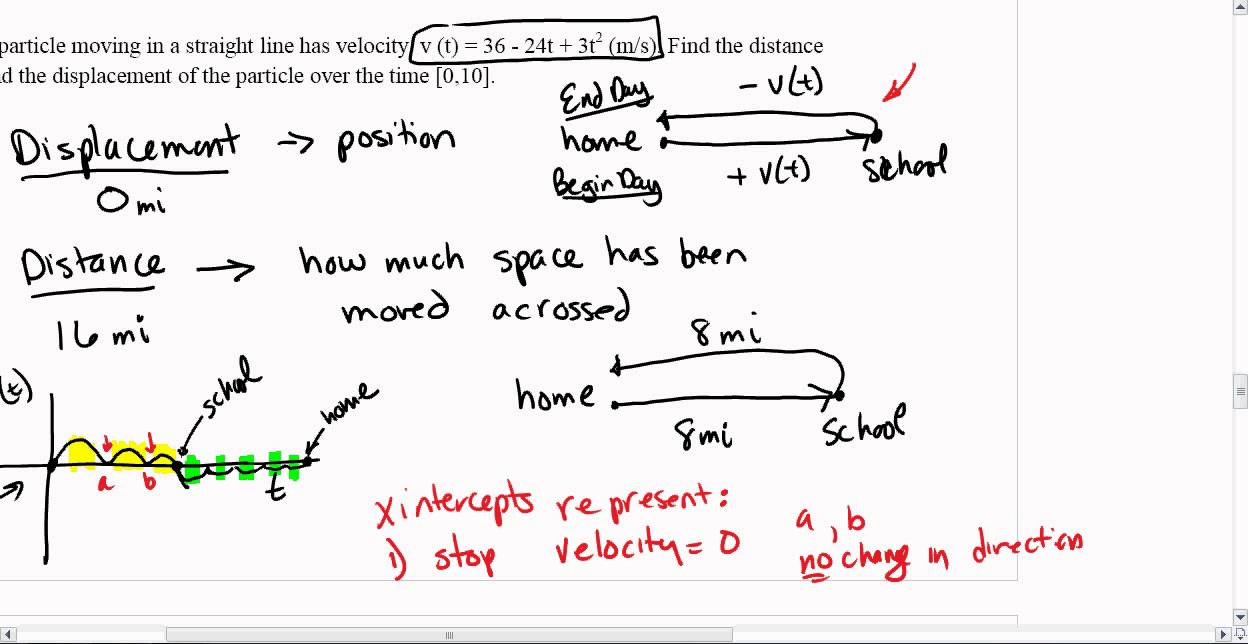 particle moving in a straight line has velocity v (t) = 36 - 24t + 3t² (m/s). Find the distance
d the displacement of the particle over the time [0,10].
End Day
- v(t)
Displacement → position
home
school
0 mi
Begin Day
+ v(t)
Distance → how much space has been
moved acrossed
16 mi
8 mi
home
school
8mi
(t)
school
home
a
b
t
x intercepts represent:
1) stop velocity = 0
a, b
no change in direction